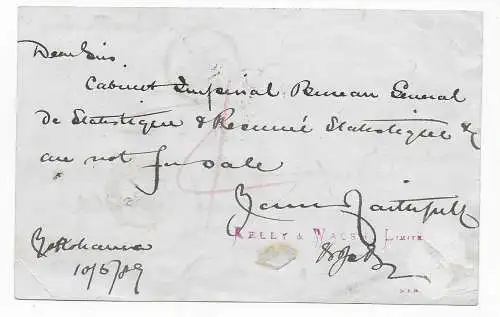 Dear Sir.
Cabinet Imperial Bureau General
De Statistique & Resumé Statistique &c
are not for sale
Yours faithfully
KELLY & WALSH LIMITE
Yokohama
10/5/89